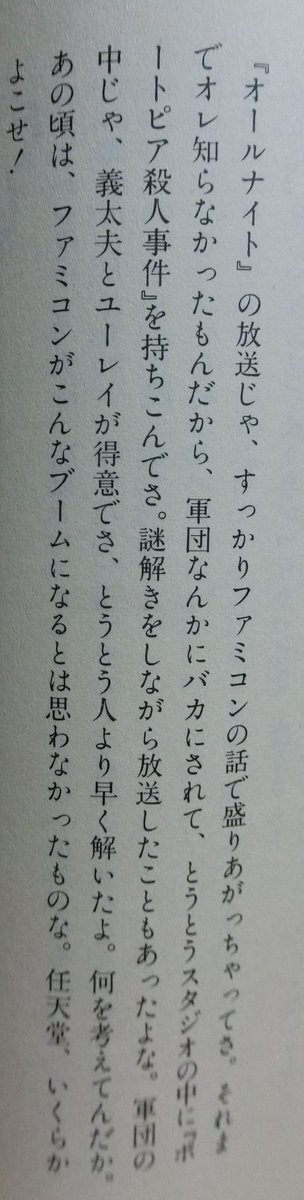 『オールナイト』の放送じゃ、すっかりファミコンの話で盛りあがっちゃってさ。それま
でオレ知らなかったもんだから、軍団なんかにバカにされて、とうとうスタジオの中に『ポ
ートピア殺人事件』を持ちこんでさ。謎解きをしながら放送したこともあったよな。軍団の
中じゃ、義太夫とユーレイが得意でさ、とうとう人より早く解いたよ。何を考えてんだか。
あの頃は、ファミコンがこんなブームになるとは思わなかったものな。任天堂、いくらか
よこせ！